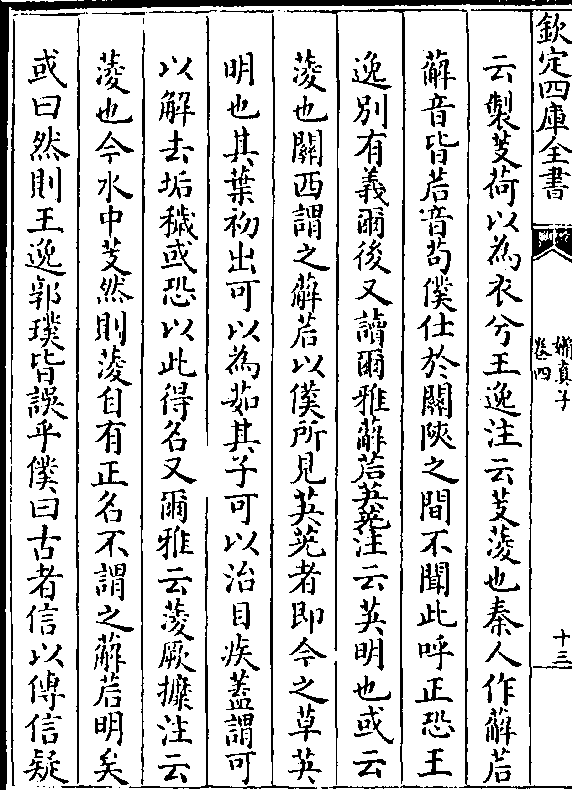 欽定四庫全書
嬾真子
卷四
十三
云製芰荷以為衣兮王逸注云芰蔆也秦人作薢茩
薢音皆茩音苟僕仕於關陜之間不聞此呼正恐王
逸別有義爾後又讀爾雅薢茩英茪注云英明也或云
蔆也關西謂之薢茩以僕所見英茪者即今之草英
明也其葉初出可以為茹其子可以治目疾蓋謂可
以解去垢穢或恐以此得名又爾雅云蔆厥攗注云
蔆也今水中芰然則蔆自有正名不謂之薢茩明矣
或曰然則王逸郭璞皆誤乎僕曰古者信以傳信疑